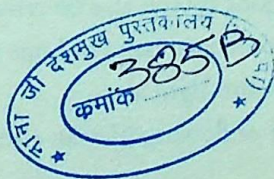 ★ नाना जी देशमुख पुस्तकालय ★
कमांक 385B